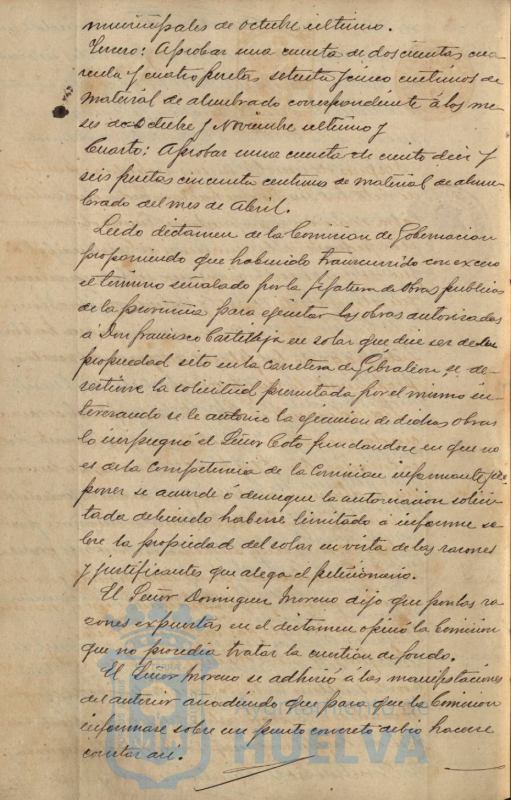 municipales de Octubre último.
Tercero: Aprobar una cuenta de doscientas cua
renta y cuatro pesetas setenta y cinco centimos de
material de alumbrado correspondiente á los me
ses de Octubre y Noviembre último y
Cuarto: Aprobar una cuenta de ciento diez y
seis pesetas cincuenta centimos de material de alum-
brado del mes de Abril.
Leido dictamen de la Comision de Gobernacion
proponiendo que habiendo transcurrido con exceso
el termino señalado por la Jefatura de Obras publicas
de la provincia para ejecutar las obras autorizadas
a Don Francisco en solar que dice ser de su
propiedad sito en la carretera de Gibraleon se de-
sestime la solicitud presentada por el mismo in-
teresando se le autorice la ejecucion de dichas obras
lo impugnó el Señor Coto fundandose en que no
es de la competencia de la Comision informante pro
poner se acuerde ó deniegue la autorizacion solici-
tada debiendo haberse limitado a informe so-
bre la propiedad del solar en vista de las razones
y justificantes que alega el peticionario.
El Señor Dominguez Moreno dijo que por las ra
zones expuestas en el dictamen opinó la Comision
que no procedia tratar la cuestion de fondo.
El Señor Moreno se adhirió á las manifestaciones
del anterior añadiendo que para que la Comision
informase sobre un punto concreto debio hacerse
constar asi.
Ayuntamiento de
HUELVA